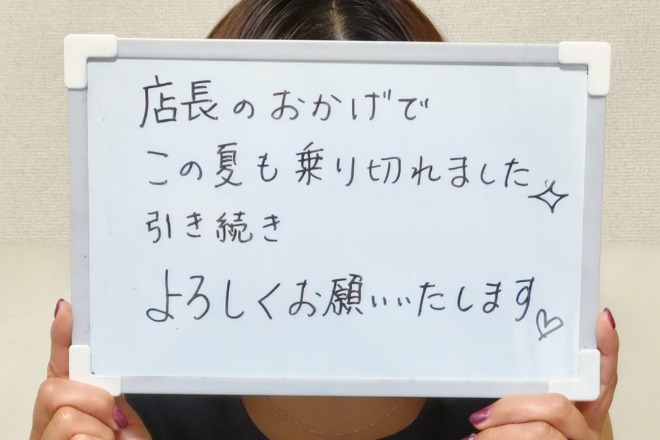 店長のおかげで
この夏も乗り切れました
引き続き
よろしくお願いいたします